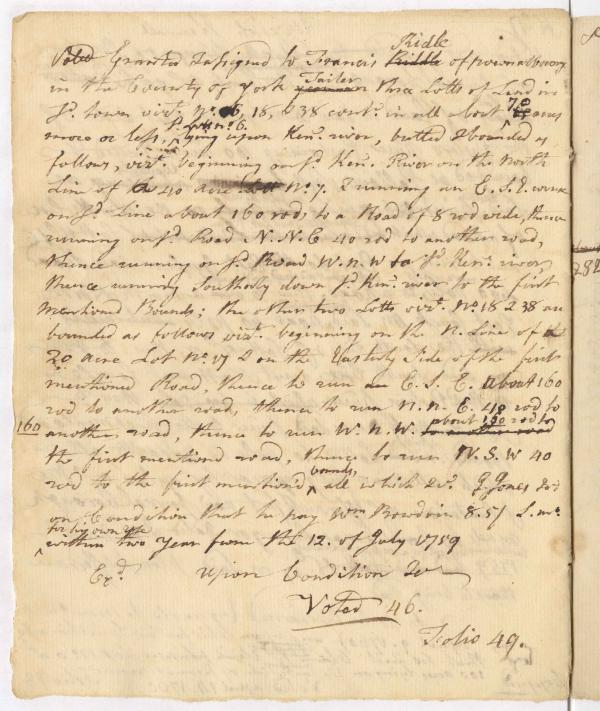 Voted Granted & assigned to Francis Ridle Riddle of pownalborough
in the County of York Tailer yeoman three Lotts of Land in
sd. town vizt. No. 6, 18, & 38 cont. in all abot 70 acres
more or less, No. 6. lying upon Ken. river, butted & bounded as
follows, vizt. beginning on sd. Ken. River on the North
Line of 40 acre Lott No. 7. & running an E. S. E. corse
on sd. Line about 160 rods to a Road of 8 rod wide, thence
running on sd. Road N. N. E 40 rod to another road,
thence running on sd. Road W. N. W to sd. Ken. river
thence running Southerly down sd. Ken. river to the first
mentioned Bounds; the other two Lotts vizt. No. 18 & 38 are
bounded as follows vizt. beginning on the N. Line of
20 acre Lot No. 17 & on the Easterly Side of the first
mentioned Road, thence to run E. S. E. about 160
rod to another road, thence to run N. N. E. 40 rod to
160 another road, thence to run W. N. W. about 160 rod to to another road
the first mentiond road, thence to run W. S. W 40
rod to the first mentiond bounds, all which &c. J. Jones
on Condition that he pay Wm Bowdoin 8.5/ L. m.
for his own use
within two Year from the 12. of July 1759
Exd. upon Condition &c
Voted 46.
Folio 49.